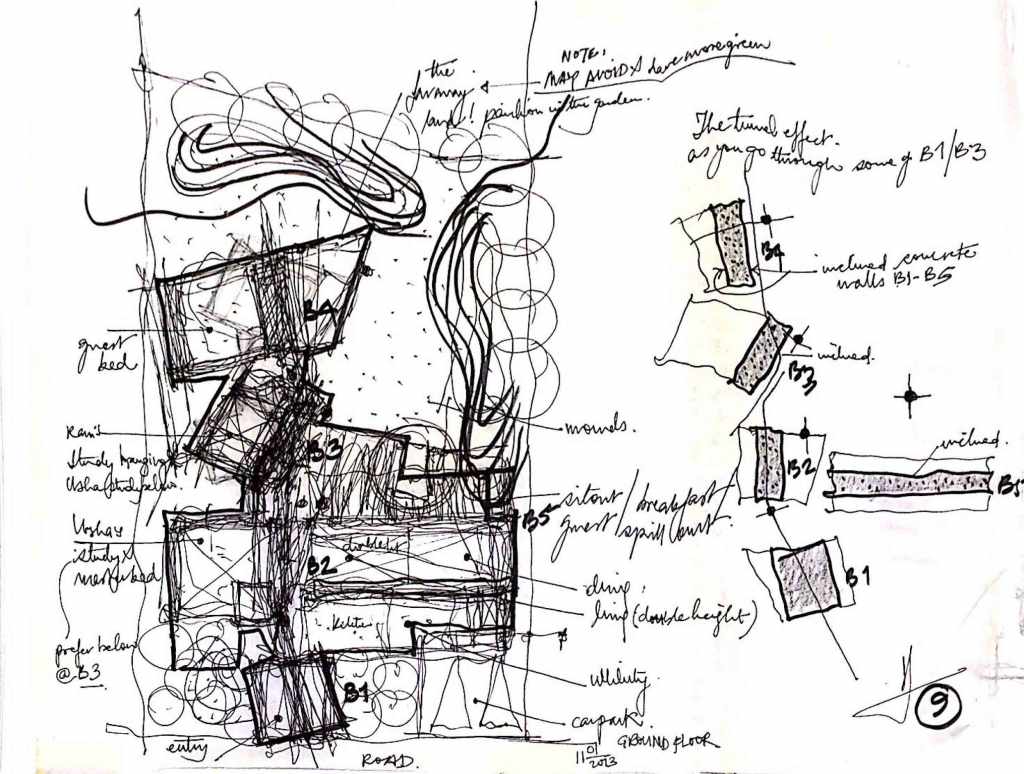 NOTE:
MAY AVOID & have more green
the
pavilion in the garden.
The tunnel effect.
as you go through some of B1/B3
B4
B4
inclined concrete
walls B1-B5
guest
bed
inclined.
B3
Ram's
B3
mounds.
inclined.
Study hanging
Usha study below.
B2
B5
sitout / breakfast
guest / spill court.
B5
Usha's
study &
master bed
B2
double ht
B1
ding.
living (double height)
prefer below
@ B3
utility.
B1
carpark.
entry
ROAD.
GROUND FLOOR
11 01 2013
9